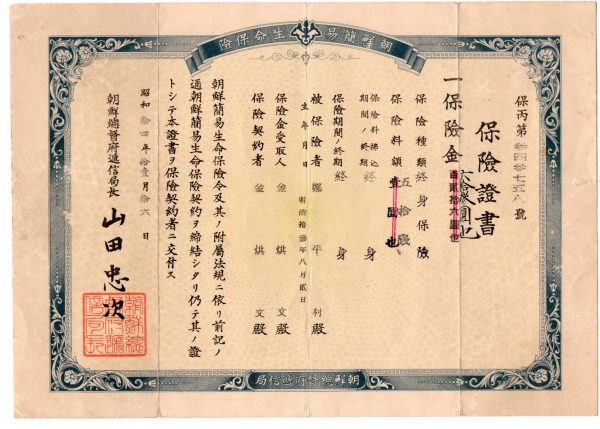 朝鮮簡易生命保險
保丙第 號
保險證書
一保險金 圓也
保險種類 終身保險
保險料額 五拾錢
保險料拂込期間ノ終期 終身
保險期間ノ終期 終身
被保險者 鄭平利殿
生年月日 明治拾參年八月貳日
保險金受取人 金烘文殿
保險契約者 金烘文殿
朝鮮簡易生命保險令及其ノ附屬法規ニ依リ前記ノ
通朝鮮簡易生命保險契約ヲ締結シタリ仍テ其ノ證
トシテ本證書ヲ保險契約者ニ交付ス
昭和拾四年拾壹月拾六日
朝鮮總督府遞信局長 山田忠次
朝鮮總督府遞信局